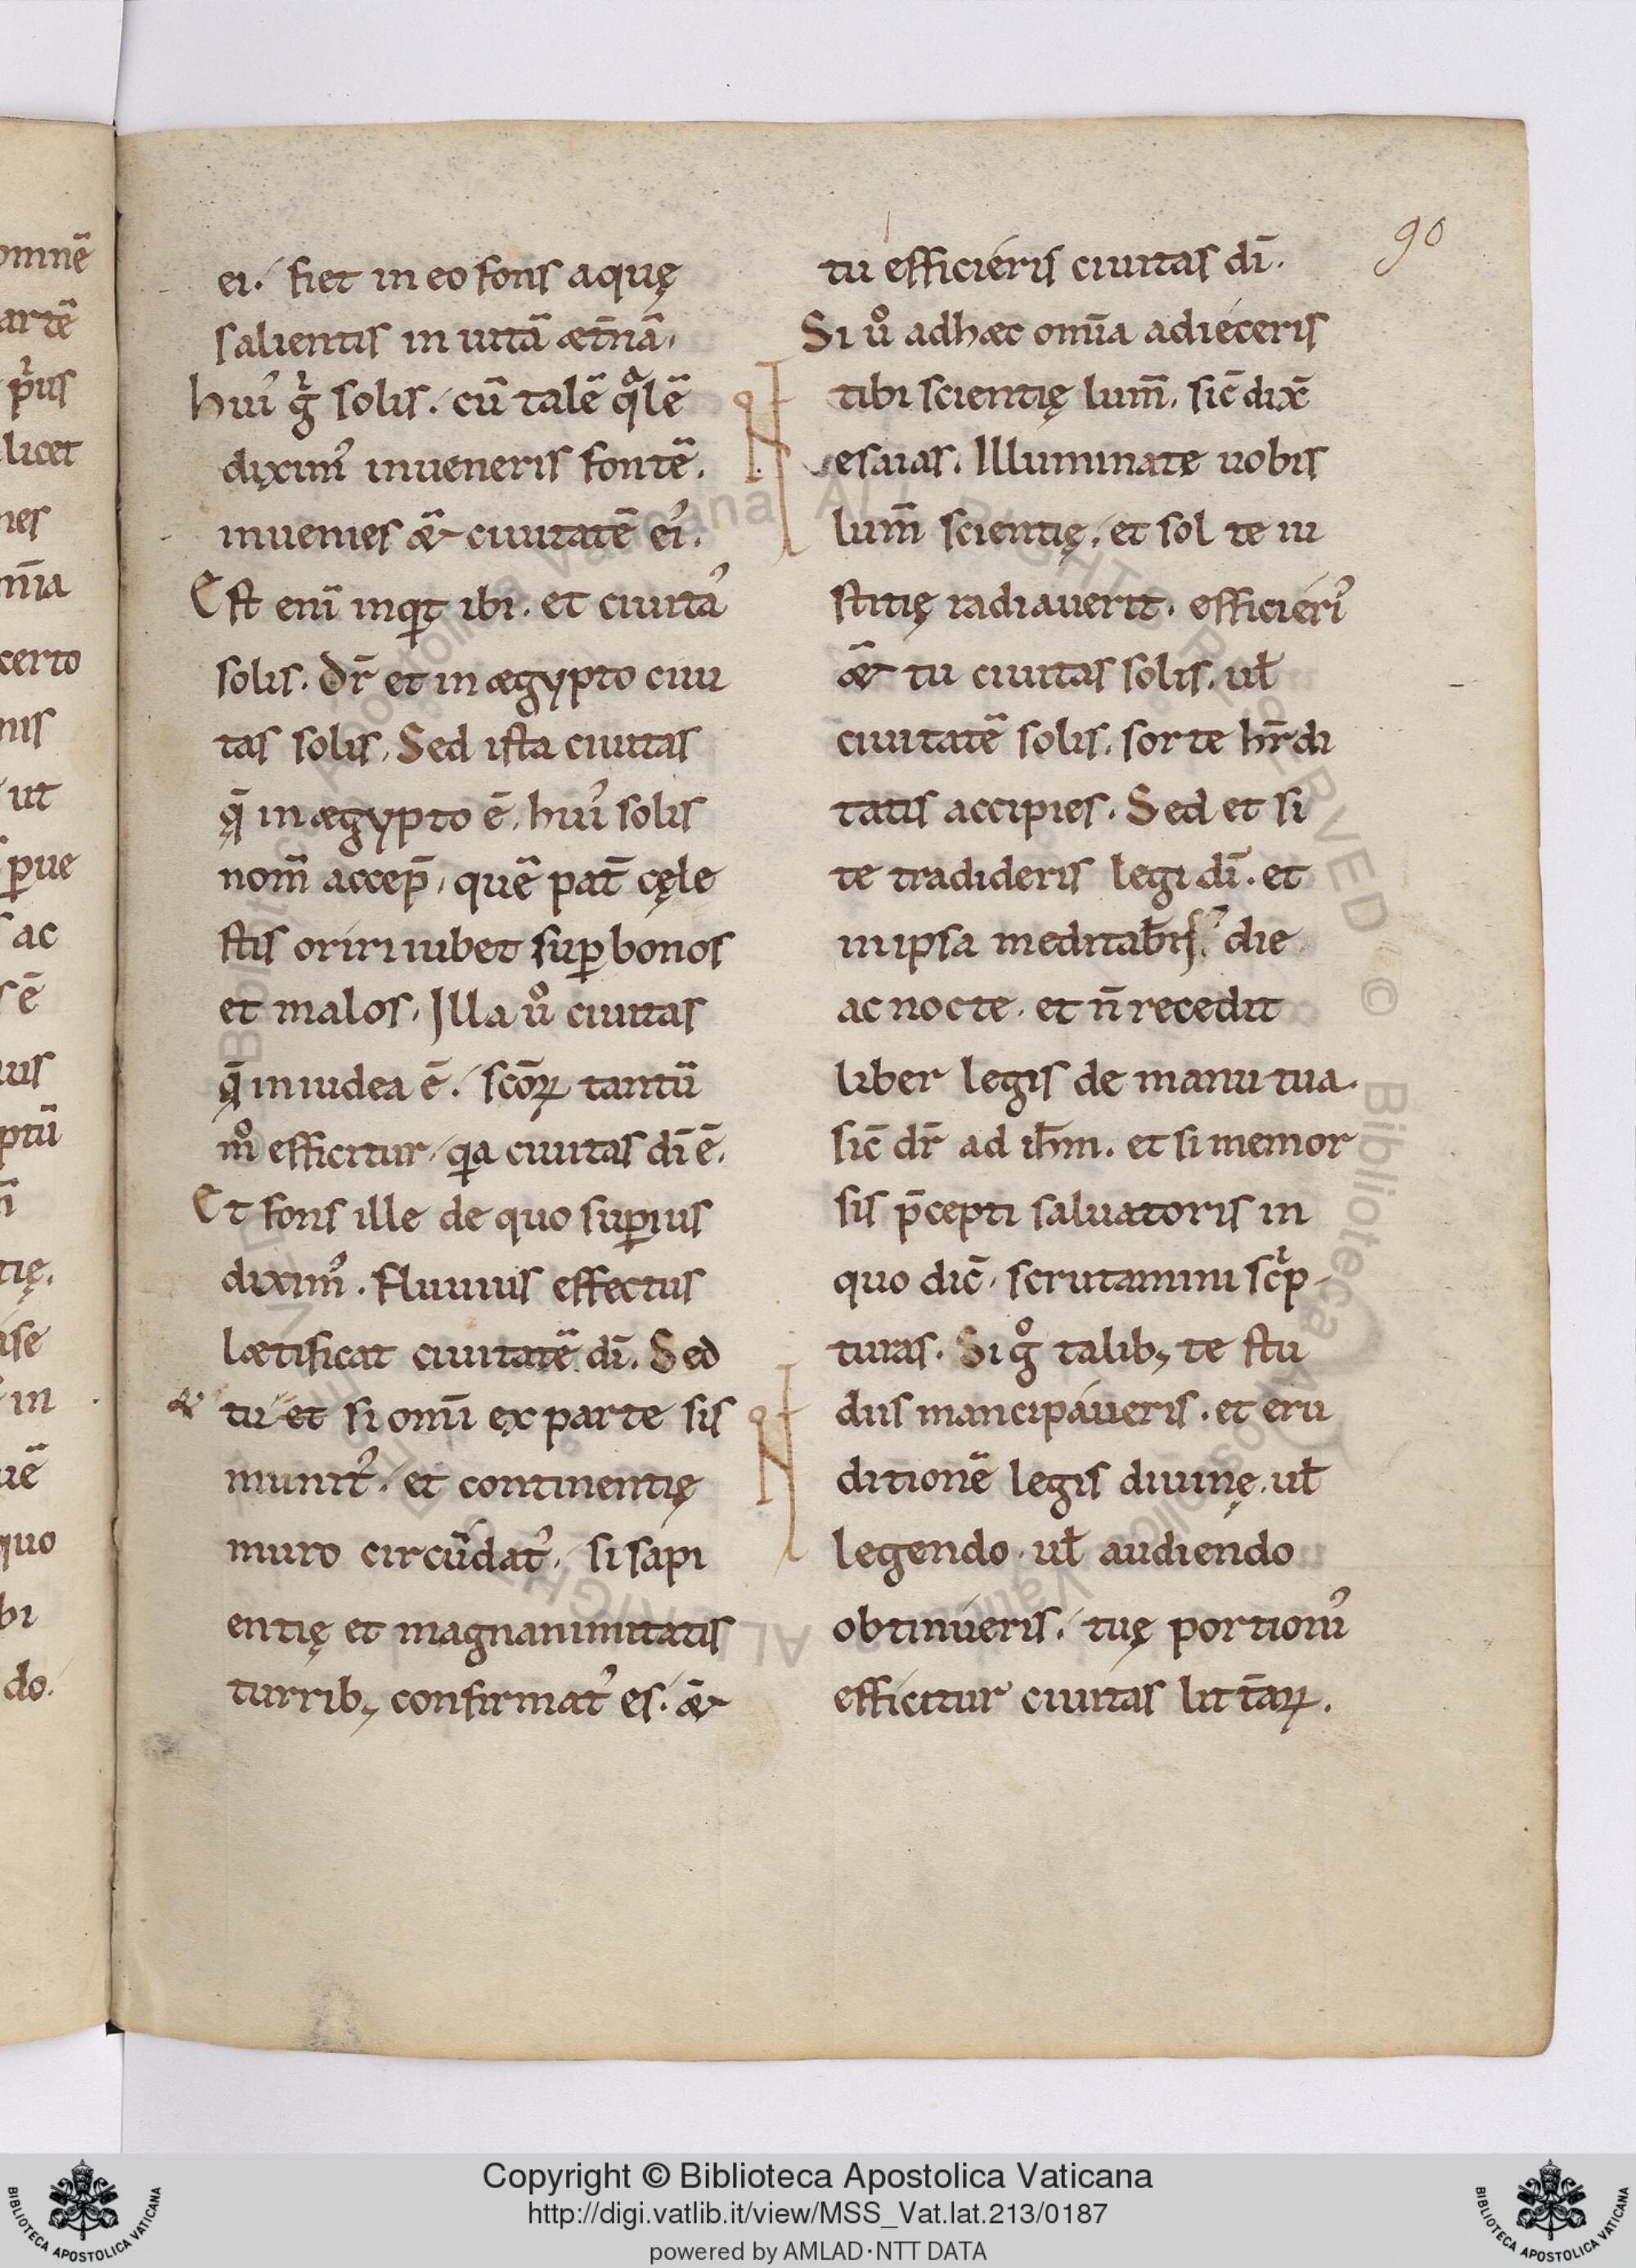 omnē
artē
p̄ius
licet
nes
m̄ia
certo
nis
ut
ꝑue
ac
ē
uis
ptū
tię.
ise
in
uē
quo
bi
do.
ei. fiet in eo fons aquę
salientis in uitā æt̄nā,
hui᾽ g̊ solis. cū talē q̄lē
diximᵒ inueneris fontē.
inuenies &̄ ciuitatē ei᾽.
Est eni᷄ inqͥt ibi. et ciuitaˢ
solis. Dr̄ et in ægypto ciui
tas solis. Sed ista ciuitas
q̨̄ in ægypto ē, hui᾽ solis
nom̄ accep̄, quē pat̄ cęle
stis oriri iubet suꝑ bonos
et malos. Illa ů ciuitas
q̨̄ in iudea ē. sc̄oꝝ tantū
m̊ efficitur, qͥa ciuitas dī ē.
Et fons ille de quo suꝑius
diximᵒ. fluuius effectus
lætificat ciuitatē dī. Sed
& tu et si om̄i ex parte sis
munit᾽. et continentię
muro circūdat᾽, si sapi
entię et magnanimitatis
turrib; confirmat᾽ es. &̄
90
tu efficieris ciuitas dī.
Si ů ad hæc om̄ia adieceris
tibi scientię lum̄. sic̄ dix̄
esaias. Illuminate uobis
lum̄ scientię. et sol te iu
stitię radiauerit. efficieri᾽
&̄ tu ciuitas solis. ul̄
ciuitatē solis, sorte hr̄di
tatis accipies. Sed et si
te tradideris legi dī. et
in ipsa meditab̄is die
ac nocte. et n̄ recedit
liber legis de manu tua.
sic̄ dr̄ ad ih̄m. et si memor
sis p̄cepti saluatoris in
quo dic̄. scrutamini scͥp
turas. Si g̊ talib; te stu
diis mancipaueris. et eru
ditionē legis diuinę. ul̄
legendo. ul̄ audiendo
obtinueris. tuę portioni᾽
efficitur ciuitas litt̄aꝝ.
Copyright © Biblioteca Apostolica Vaticana
http://digi.vatlib.it/view/MSS_Vat.lat.213/0187
powered by AMLAD·NTT DATA
BIBLIOTECA APOSTOLICA VATICANA
BIBLIOTECA APOSTOLICA VATICANA